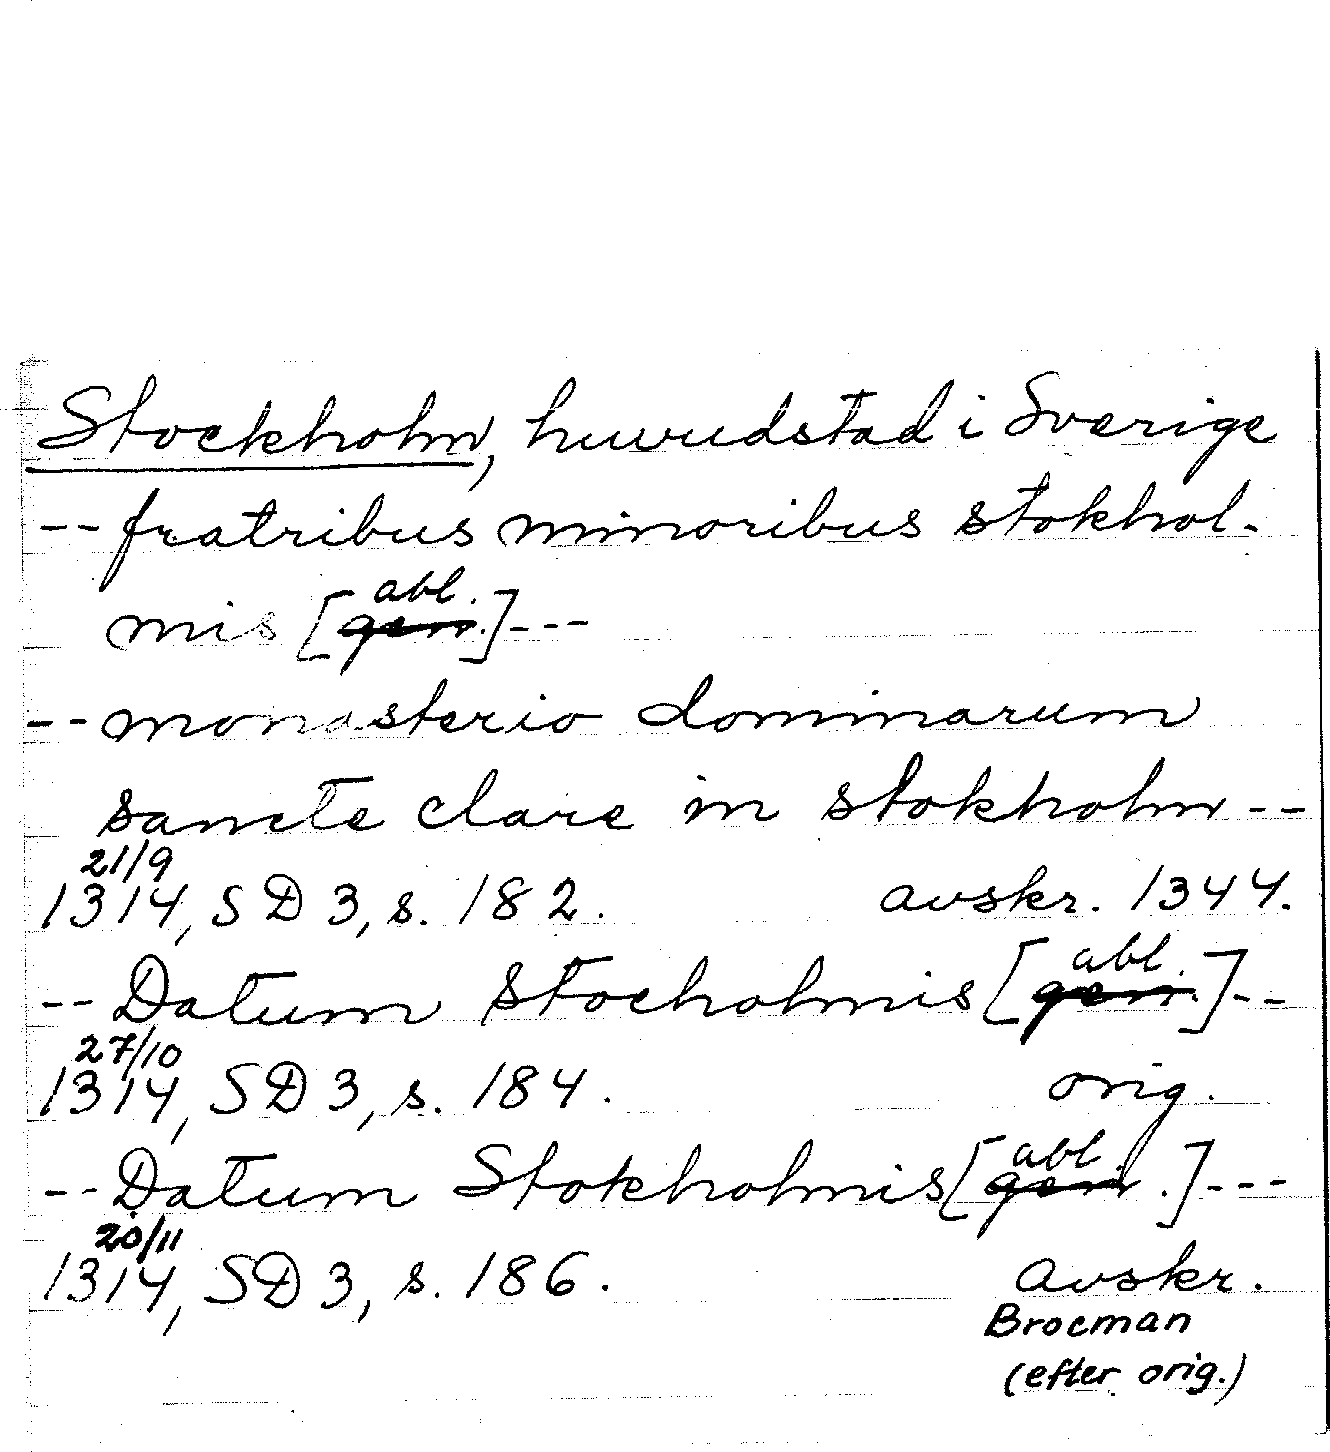 Stockholm, huvudstad i Sverige
-- fratribus minoribus stokhol-
abl.
mis [gen.]---
-- monasterio dominarum
sancte clare in stokholm --
21/9
1314, SD 3, s. 182. avskr. 1344.
abl.
-- Datum stocholmis [gen.]--
27/10
1314, SD 3, s. 184. orig.
abl.
-- Datum Stokholmis [gen.]---
20/11
1314, SD 3, s. 186. avskr.
Brocman
(efter orig.)